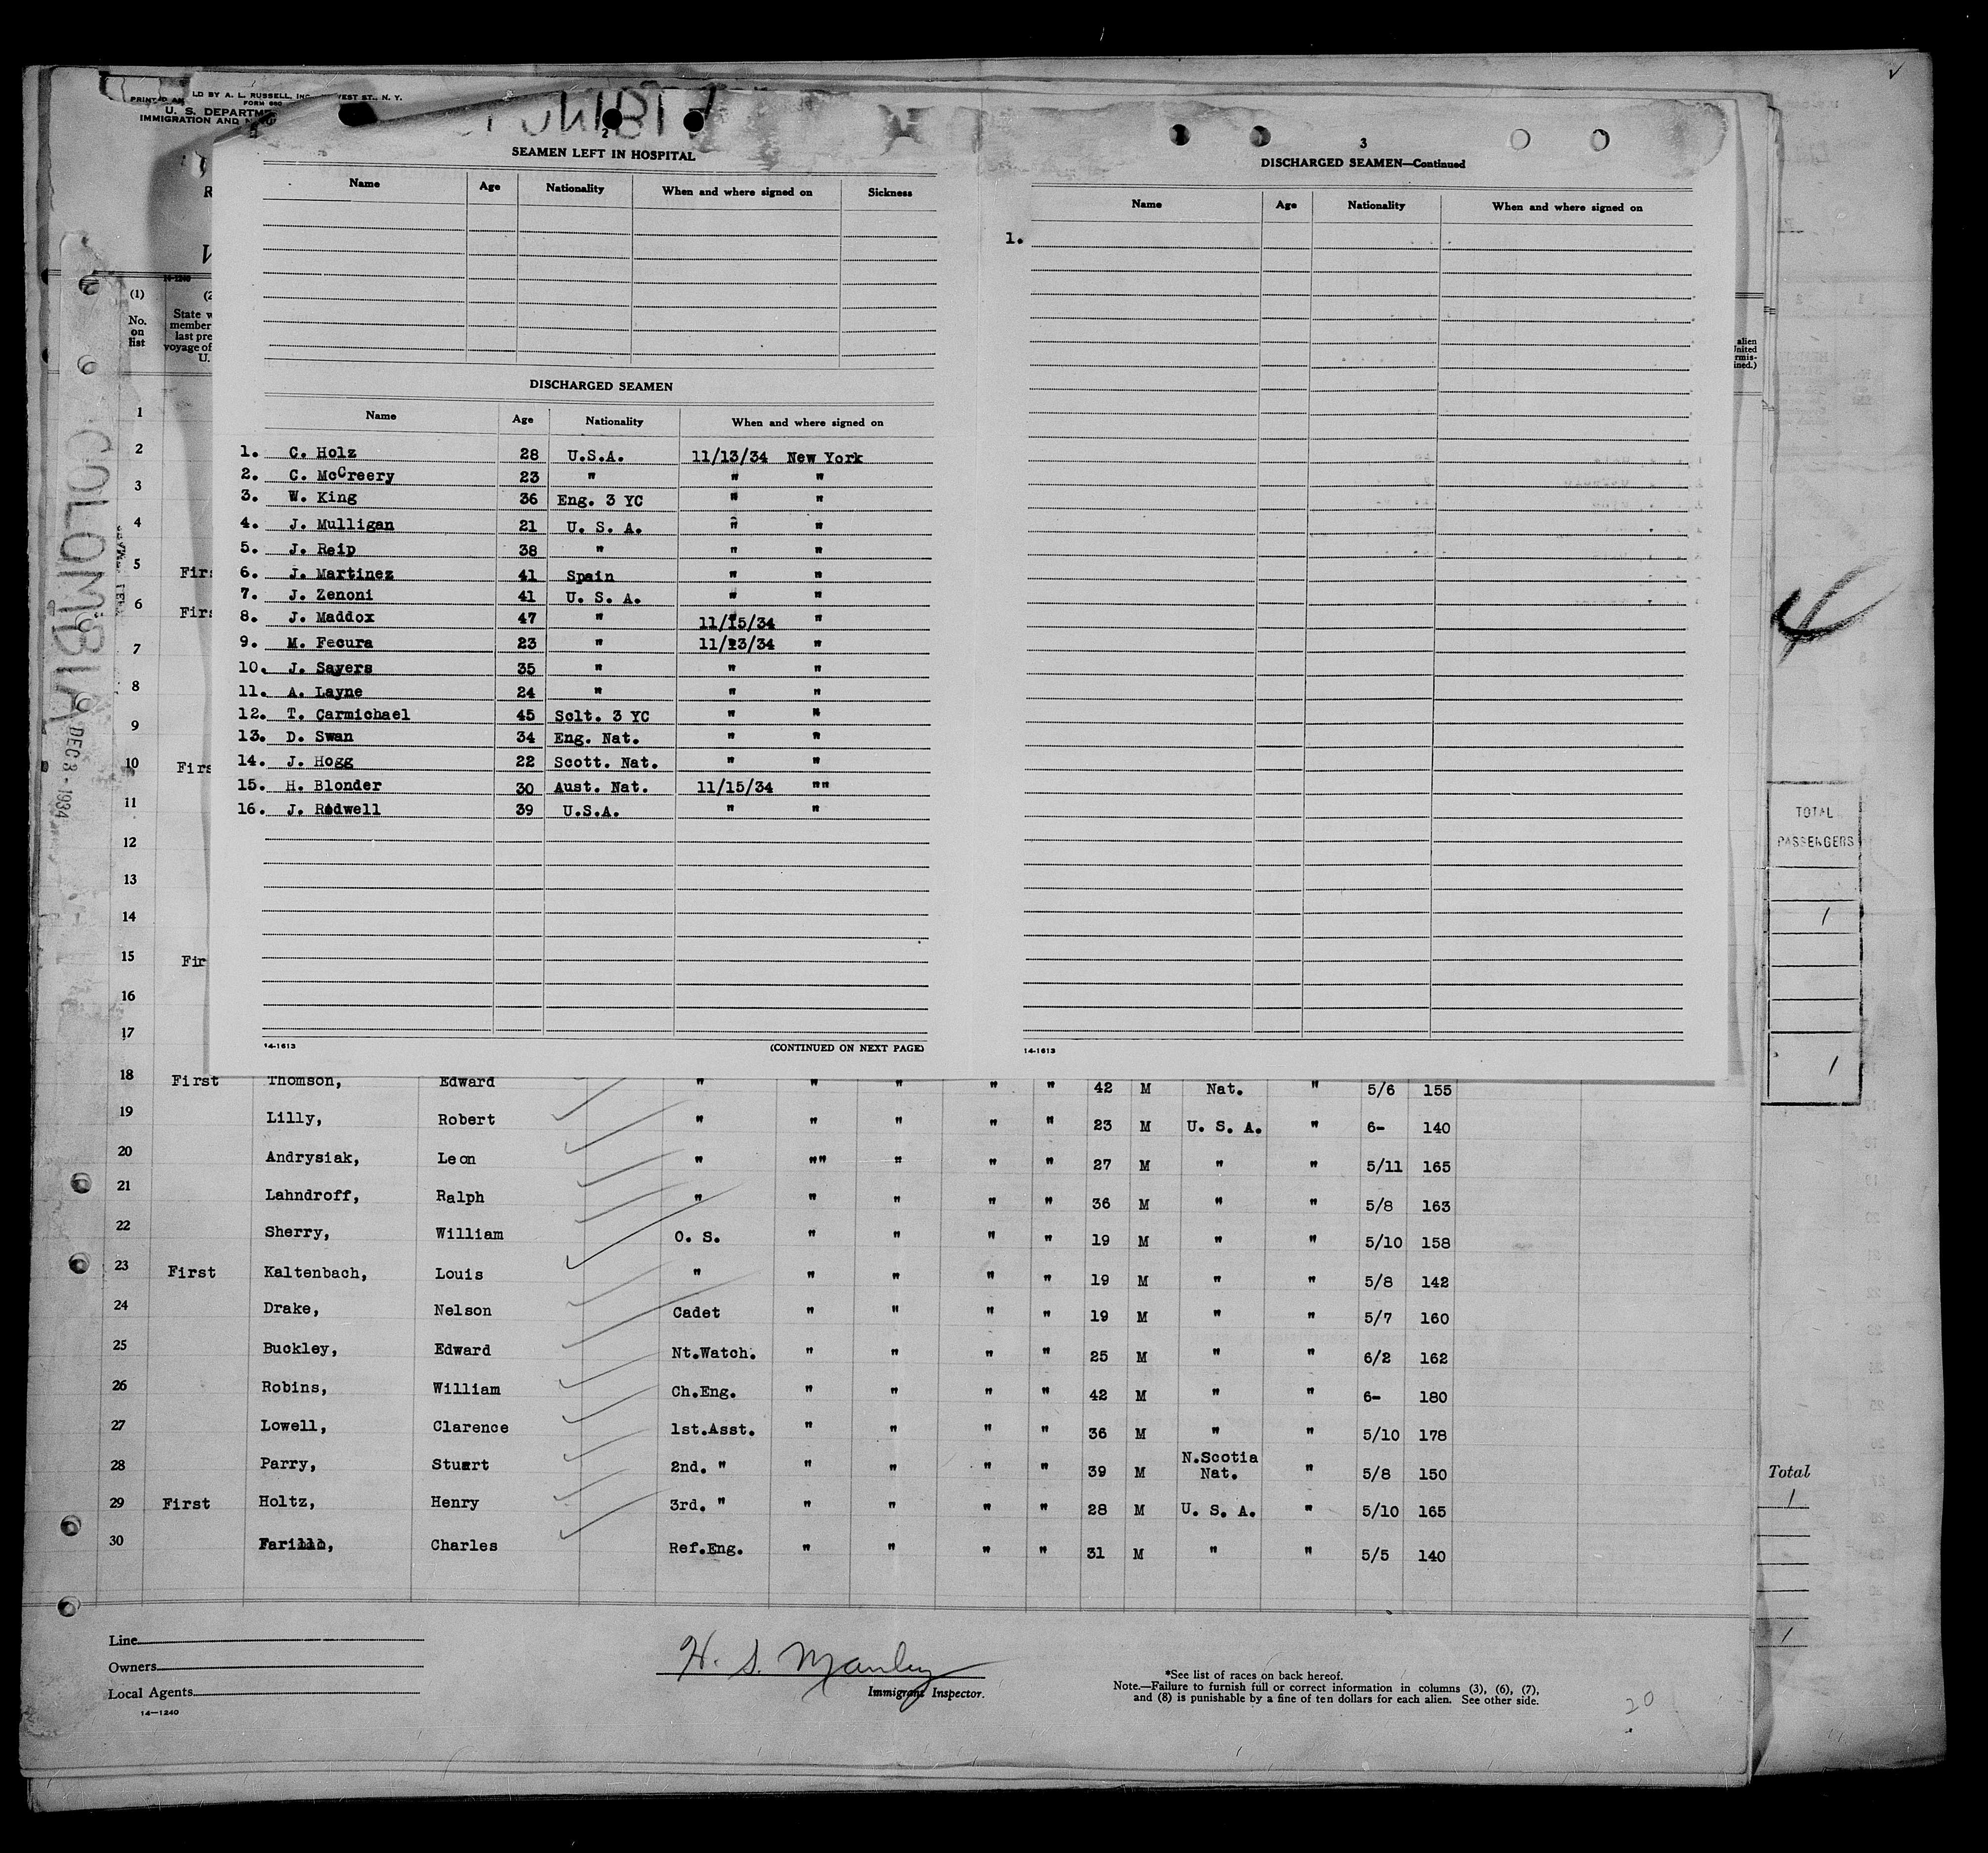 PRINTED AN LD BY A. L. RUSSELL, INC. WEST ST., N. Y.
FORM 680
U. S. DEPARTM
IMMIGRATION AND N
14-1240
(1)
No.
on
list
State w
member
last pre
voyage of
U.
COLOMBIA
DEC 3 - 1934
2
SEAMEN LEFT IN HOSPITAL
Name Age Nationality When and where signed on Sickness
DISCHARGED SEAMEN
Name Age Nationality When and where signed on
1. C. Holz 28 U.S.A. 11/13/34 New York
2. C. McCreery 23 " " "
3. W. King 36 Eng. 3 YC " "
4. J. Mulligan 21 U. S. A. " "
5. J. Reip 38 " " "
6. J. Martinez 41 Spain " "
7. J. Zenoni 41 U. S. A. " "
8. J. Maddox 47 " 11/15/34 "
9. M. Fecura 23 " 11/23/34 "
10. J. Sayers 35 " " "
11. A. Layne 24 " " "
12. T. Carmichael 45 Sclt. 3 YC " "
13. D. Swan 34 Eng. Nat. " "
14. J. Hogg 22 Scott. Nat. " "
15. H. Blonder 30 Aust. Nat. 11/15/34 ""
16. J. Rodwell 39 U.S.A. " "
14-1613 (CONTINUED ON NEXT PAGE)
3
DISCHARGED SEAMEN—Continued
Name Age Nationality When and where signed on
1.
14-1613
alien
United
rmis-
ined.)
4
TOTAL
PASSENGERS
1
1
1
2
3
4
5 Firs
6 Firs
7
8
9
10 Firs
11
12
13
14
15 Fir
16
17
18 First Thomson, Edward " " " " " 42 M Nat. " 5/6 155
19 Lilly, Robert " " " " " 23 M U. S. A. " 6- 140
20 Andrysiak, Leon " "" " " " 27 M " " 5/11 165
21 Lahndroff, Ralph " " " " " 36 M " " 5/8 163
22 Sherry, William O. S. " " " " 19 M " " 5/10 158
23 First Kaltenbach, Louis " " " " " 19 M " " 5/8 142
24 Drake, Nelson Cadet " " " " 19 M " " 5/7 160
25 Buckley, Edward Nt.Watch. " " " " 25 M " " 6/2 162
26 Robins, William Ch.Eng. " " " " 42 M " " 6- 180
27 Lowell, Clarence 1st.Asst. " " " " 36 M " " 5/10 178
28 Parry, Stuart 2nd. " " " " " 39 M N.Scotia Nat. " 5/8 150
29 First Holtz, Henry 3rd. " " " " " 28 M U. S. A. " 5/10 165
30 Charles Ref.Eng. " " " " 31 M " " 5/5 140
Total
1
1
Line
Owners
Local Agents
14—1240
H. S. Manley
Immigrant Inspector.
*See list of races on back hereof.
Note.—Failure to furnish full or correct information in columns (3), (6), (7),
and (8) is punishable by a fine of ten dollars for each alien. See other side.
20